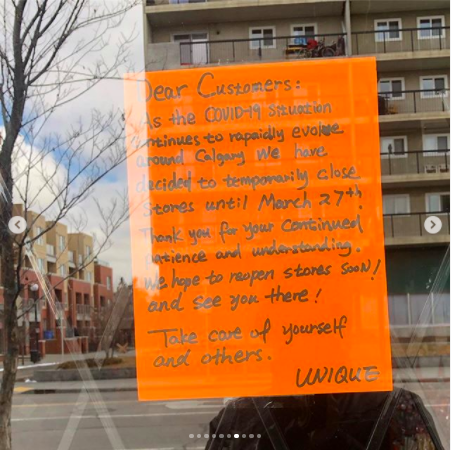 Dear Customers:
As the COVID-19 Situation
continues to rapaidly evolve
around Calgary We have
decided to temporarily close
stores until March 27th.
Thank you for your Continued
patience and understanding.
We hope to reopen stores soon!
and see you there!
Take care of yourself
and others.
UNIQUE